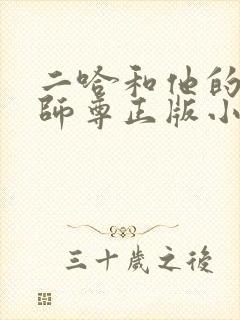 二哈和他的
師尊正版小
三十歲之後